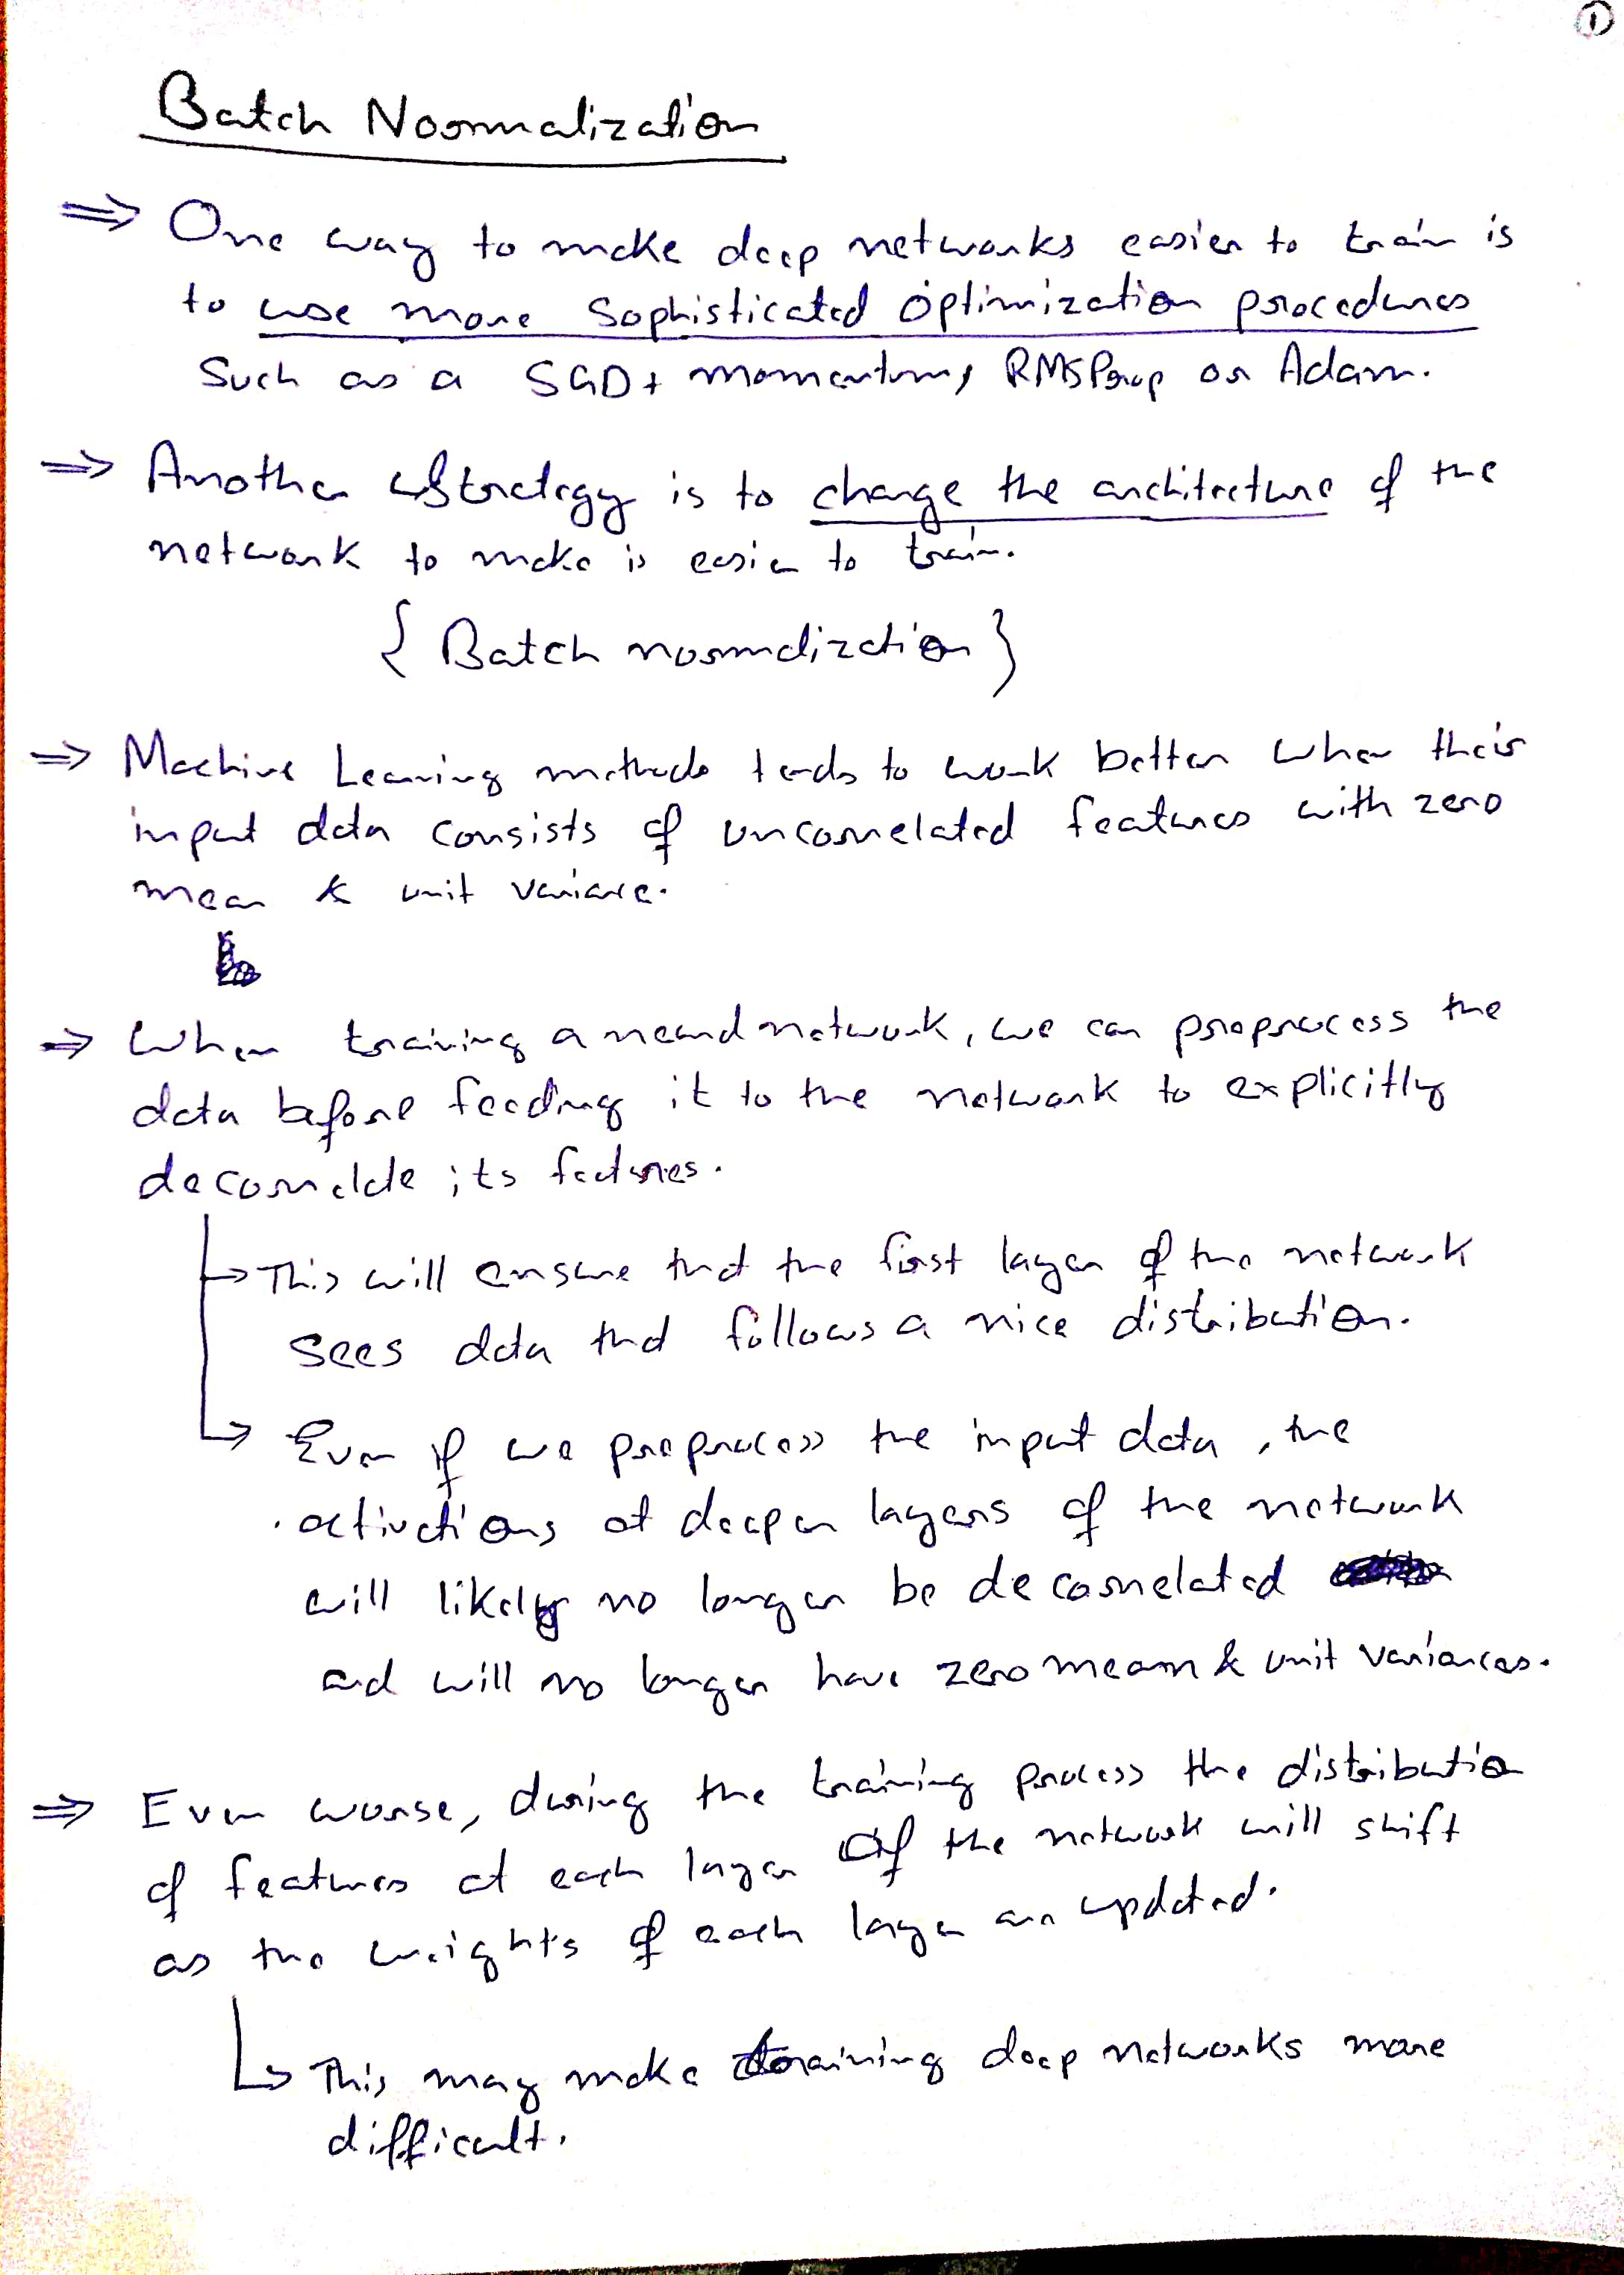 ①
Batch Normalization
⇒ One way to make deep networks easier to train is
to use more sophisticated optimization procedures
Such as a SGD+ momentum, RMSProp or Adam.
⇒ Another Strategy is to change the architecture of the
network to make is easier to train.
{ Batch normalization }
⇒ Machine Learning methods tends to work better when their
input data consists of uncorrelated features with zero
mean & unit variance.
⇒ When training a neural network, we can preprocess the
data before feeding it to the network to explicitly
decorrelate its features.
↳ This will ensure that the first layer of the network
sees data that follows a nice distribution.
↳ Even if we preprocess the input data, the
activations at deeper layers of the network
will likely no longer be decorrelated
and will no longer have zero mean & unit variances.
⇒ Even worse, during the training process the distribution
of features at each layer of the network will shift
as the weights of each layer are updated.
↳ This may make training deep networks more
difficult.